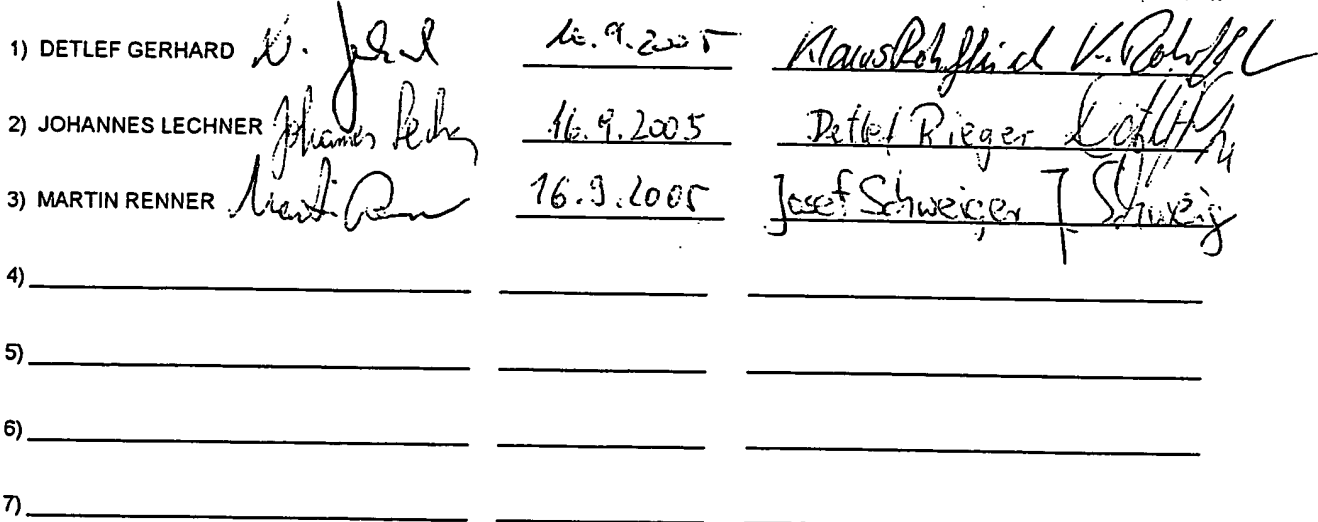 1) DETLEF GERHARD 16.9.2005 Klaus
2) JOHANNES LECHNER Johannes Lechner 16.9.2005 Detlef Rieger
3) MARTIN RENNER Martin Renner 16.9.2005 Josef Schweiger J Schweig
4)
5)
6)
7)